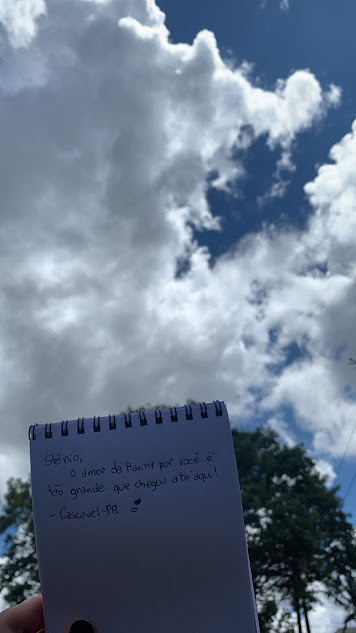 Stênio,
o amor da Hanny por você é
tão grande que chegou até aqui!
- Cascavel-PR